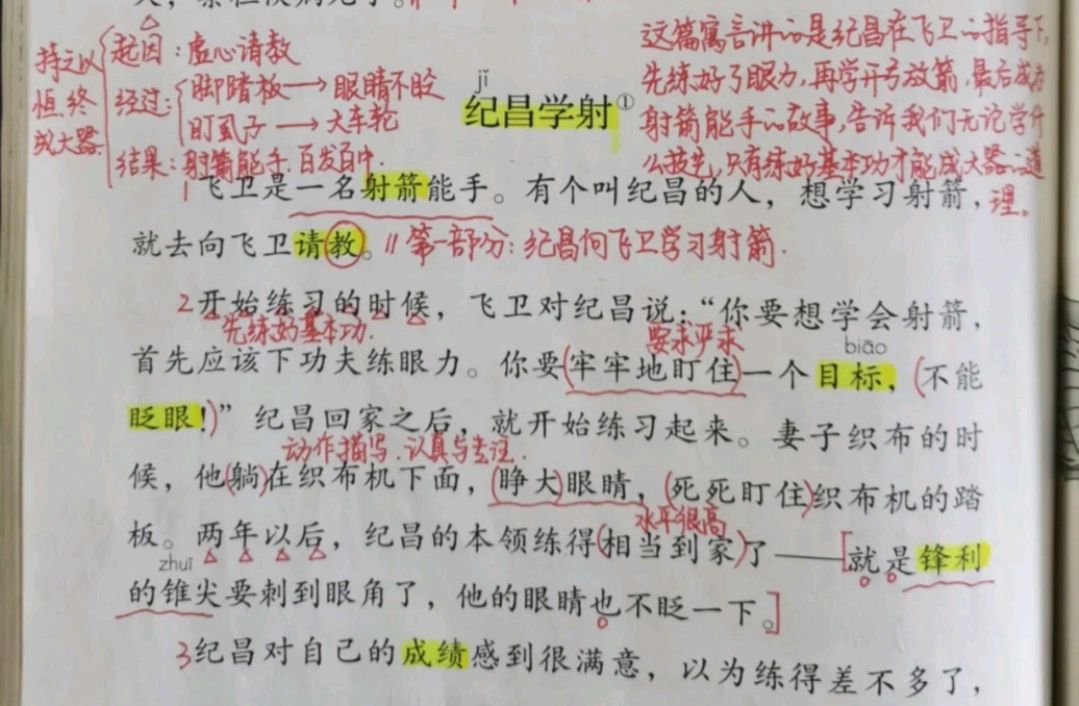 持之以
恒，终
成大器
起因：虚心请教
经过：
脚踏板→眼睛不眨
盯虱子→大车轮
结果：射箭能手，百发百中．
jǐ
纪昌学射①
这篇寓言讲的是纪昌在飞卫的指导下，
先练好了眼力，再学开弓放箭，最后成为
射箭能手的故事，告诉我们无论学什
么技艺，只有练好基本功才能成大器的道
理。
1飞卫是一名射箭能手。有个叫纪昌的人，想学习射箭，
就去向飞卫请教。// 第一部分：纪昌向飞卫学习射箭．
2开始练习的时候，飞卫对纪昌说：“你要想学会射箭，
先练好基本功．
要求严求
biāo
首先应该下功夫练眼力。你要(牢牢地盯住)一个目标，(不能
眨眼！)”纪昌回家之后，就开始练习起来。妻子织布的时
动作描写．认真与专注．
候，他(躺)在织布机下面，(睁大)眼睛，(死死盯住)织布机的踏
水平很高
板。两年以后，纪昌的本领练得(相当到家)了——[就是锋利
zhuī
的锥尖要刺到眼角了，他的眼睛也不眨一下。]
3纪昌对自己的成绩感到很满意，以为练得差不多了，